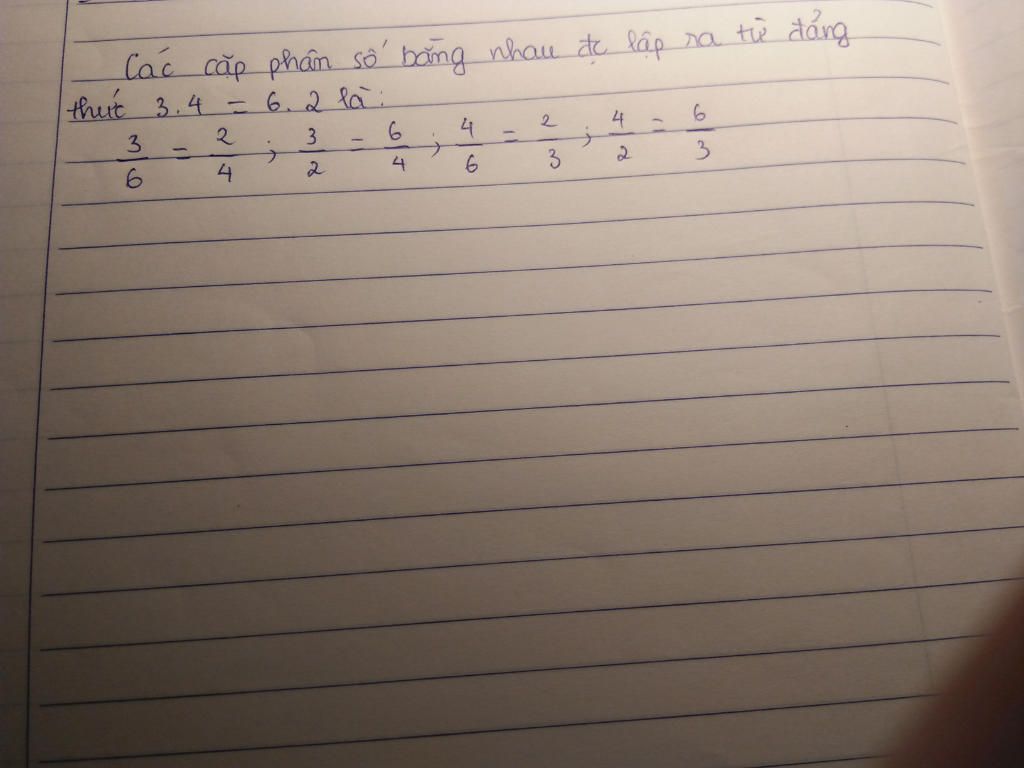 Các cặp phân số bằng nhau đc lập ra từ đẳng
thức 3.4 = 6.2 là:
3/6 = 2/4 ; 3/2 = 6/4 ; 4/6 = 2/3 ; 4/2 = 6/3